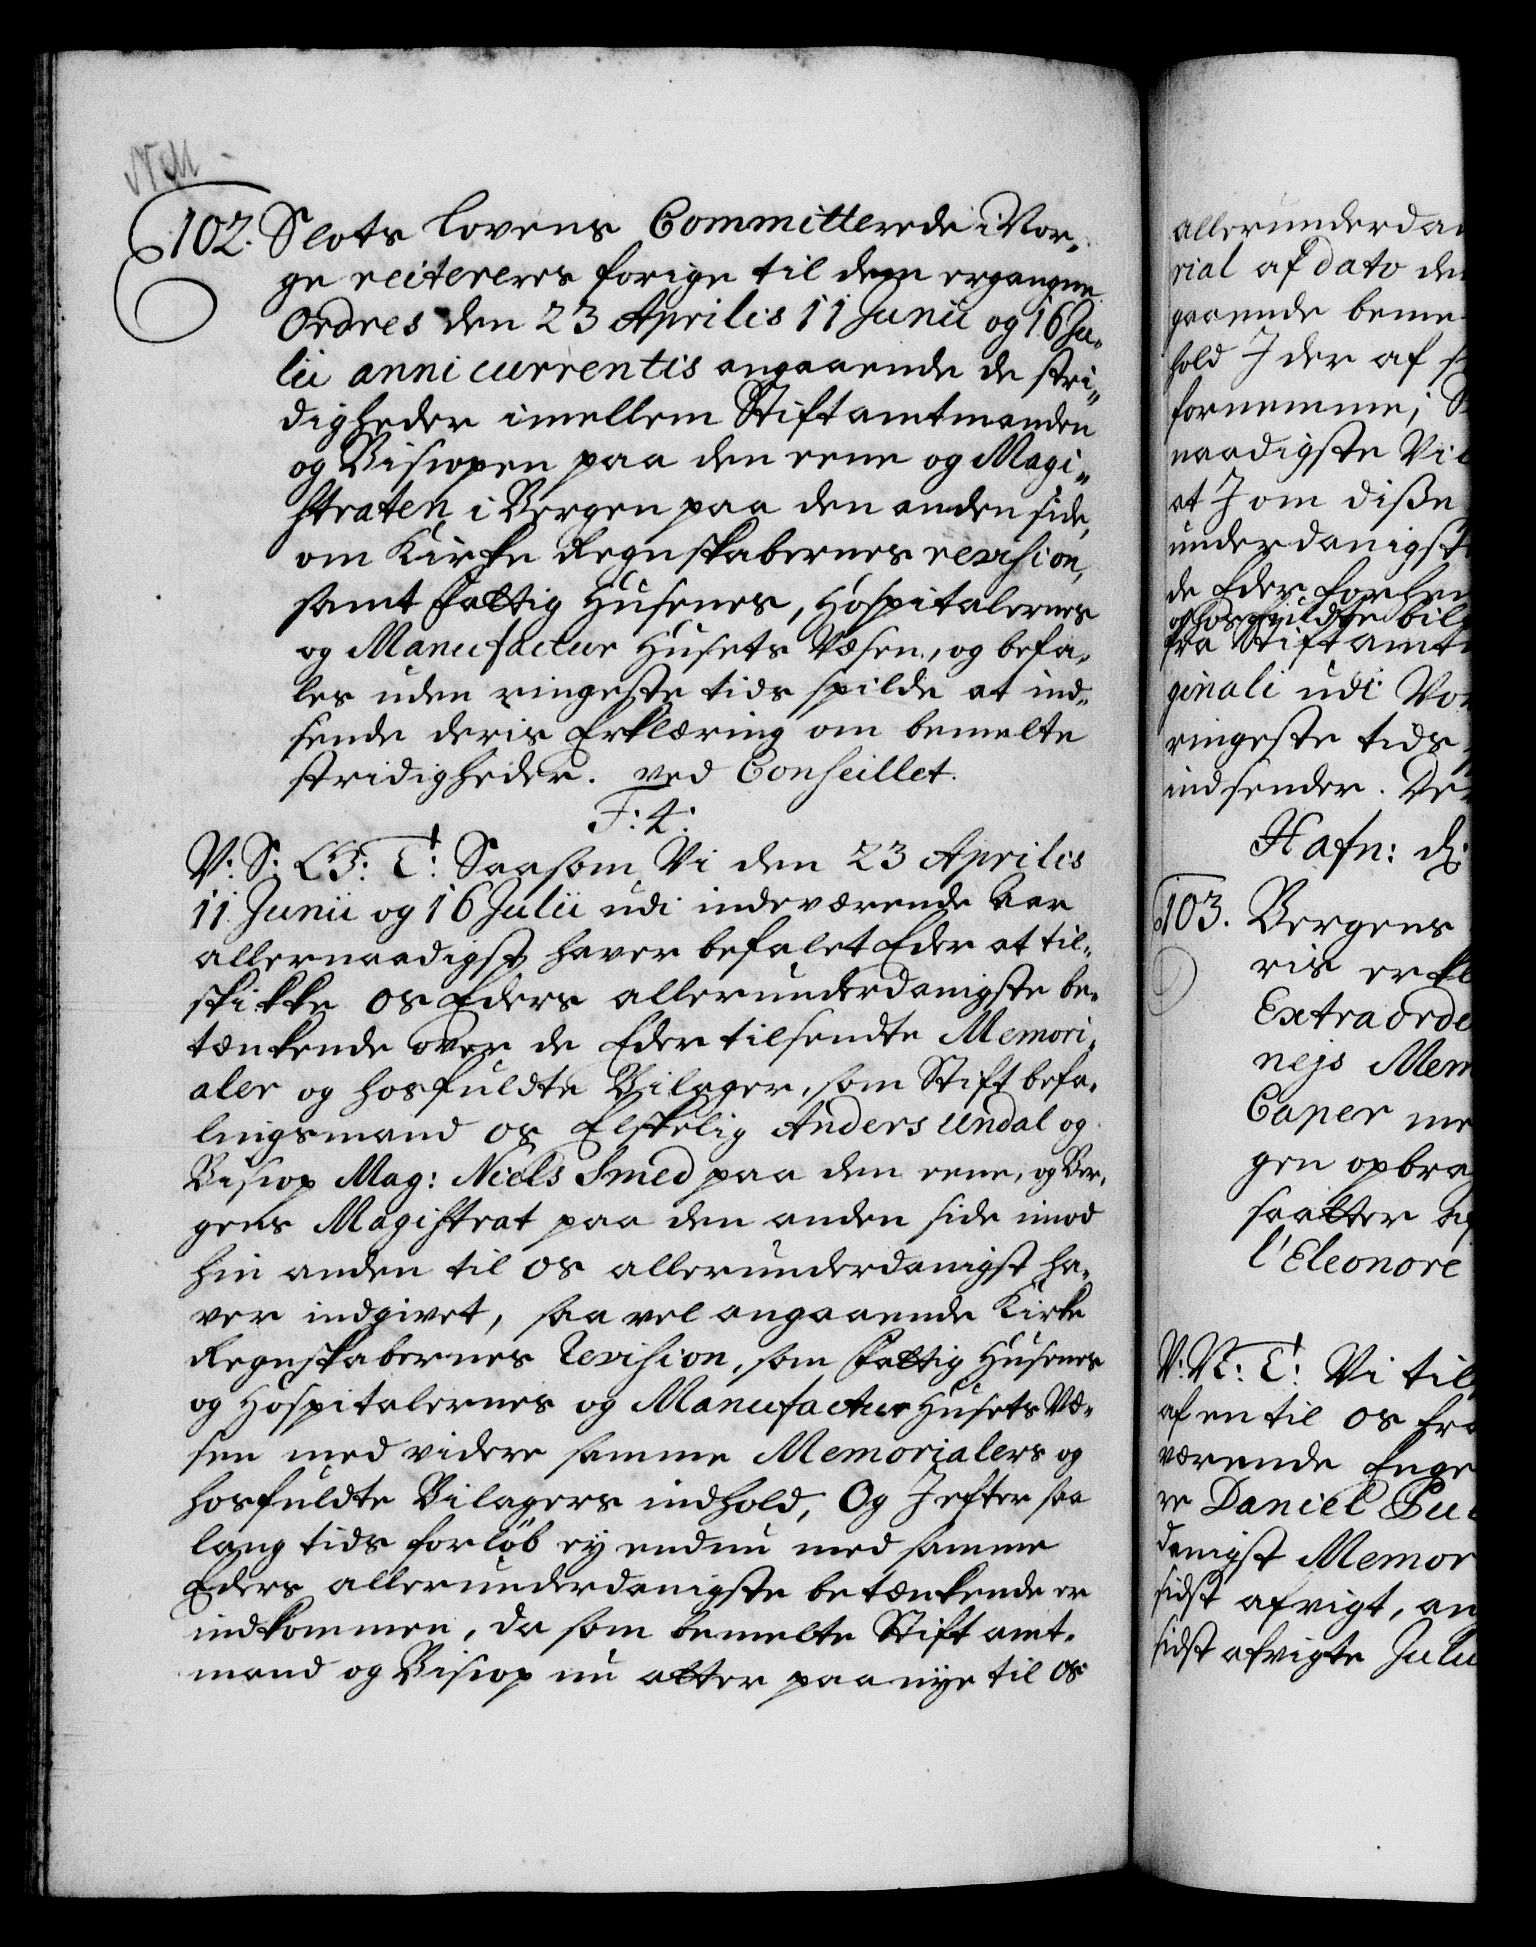 102. Slots lovens Committerede i Nor-
ge reitereres forige til dem ergangne
Ordres den 23 Aprilis 11 Junii og 16 Ju-
lii anni currentis angaaende de stri-
digheder imellem Stiftamtmanden
og Bisiopen paa den eene og Magi-
straten i Bergen paa den anden side,
om Kirke Regnskabernes revision,
samt Fattig Husenes, Hospitalernes
og Manufactur Husets Væsen, og befa-
les uden ringeste tids spilde at ind-
sende deris Erklæring om bemelte
stridigheder. ved Conseillet.
F: 4:
V: S: G: T: Saasom Vi den 23 Aprilis
11 Junii og 16 Julii udi indeværende Aar
allernaadigst haver befalet Eder at til-
skikke os Eders allerunderdanigste be-
tænkende over de Eder tilsendte Memori-
aler og hosfuldte Bilager, som Stift befa-
lingsmand os Elskelig Anders Undal og
Bisiop Mag: Niels Smed paa den eene, og Ber-
gens Magistrat paa den anden side imod
hin anden til os allerunderdanigst ha-
ver indgivet, saa vel angaaende Kirke
Regnskabernes Revision, som Fattig Husenes
og Hospitalernes og Manufactur Husets Væ-
sen med videre samme Memorialers og
hosfuldte Bilagers indhold, Og I efter saa
lang tids forløb ey endnu med samme
Eders allerunderdanigste betænkende er
indkommen, da som bemelte Stift amt-
mand og Bisiop nu atter paa nye til os
allerunderdan
rial af dato den
gaaende beme
hold I der af
fornemme; S
naadigste Vil
at I om disse
underdanigst
de Eder forhen
og hosfuldte bil
fra Stiftamt
ginali udi Vo
ringeste tids
indsender. De
Hafn: d:
103. Bergens
ris erkl
Extraorde
nejs Mem
Caper me
gen opbra
saatter
l'Eleonore
V: N: T: Vi til
af en til os fra
værende Enge
re Daniel
danigst Memor
sidst afvigt, an
sidst afvigte Julii